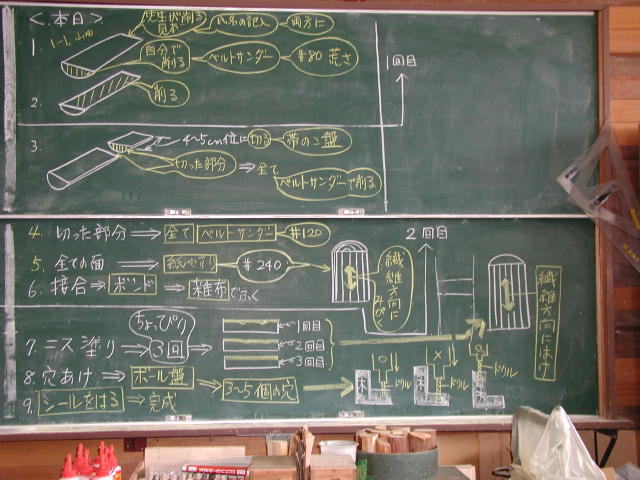 <本日>
先生が削る
見本
氏名の記入
両方に
1.
自分で
削る
ベルトサンダー
#80 荒さ
1回目
2.
削る
3.
4~5cm位に切る
帯のこ盤
切った部分 ⇒ 全て
ベルトサンダーで削る
4. 切った部分 ⇒ 全て ベルトサンダー #120
2回目
5. 全ての面 ⇒ 紙やすり #240
繊維方向に
みがく
6. 接合⇒ボンド⇒雑布でふく
繊維方向にはけ
ちょっぴり
7. ニス塗り⇒3回⇒
1回目
2回目
3回目
8. 穴あけ⇒ボール盤⇒3~5個の穴
○
×
ドリル
ドリル
ドリル
9. シールをはる⇒完成